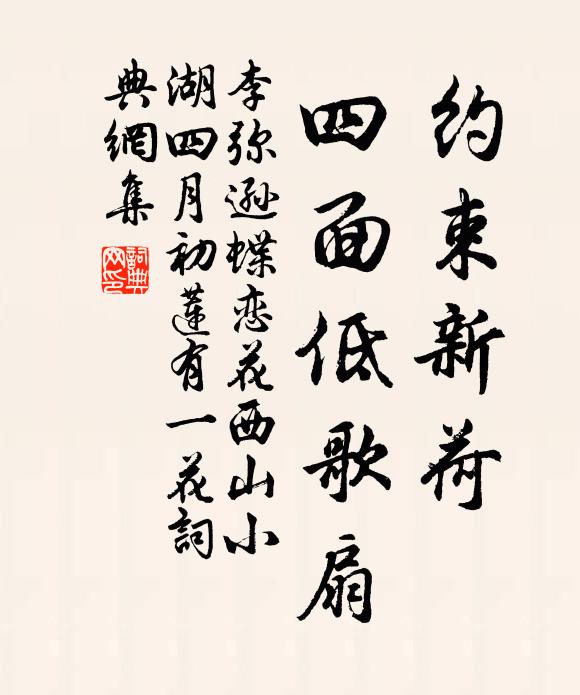 约束新荷
四面低歌扇
李弥逊蝶恋花西山小
湖四月初莲有一花詞
典網集
詞典
网印